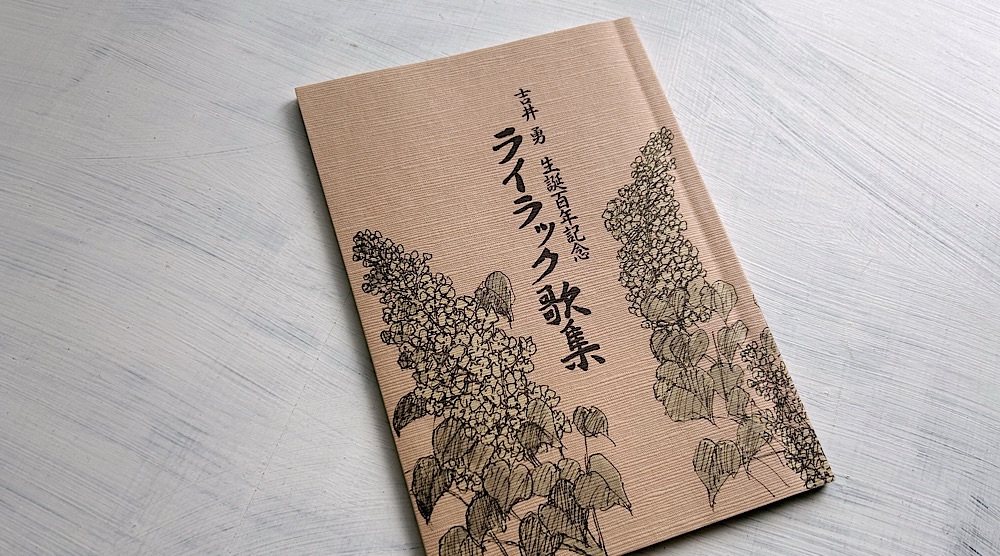 吉井勇 生誕百年記念
ライラック歌集